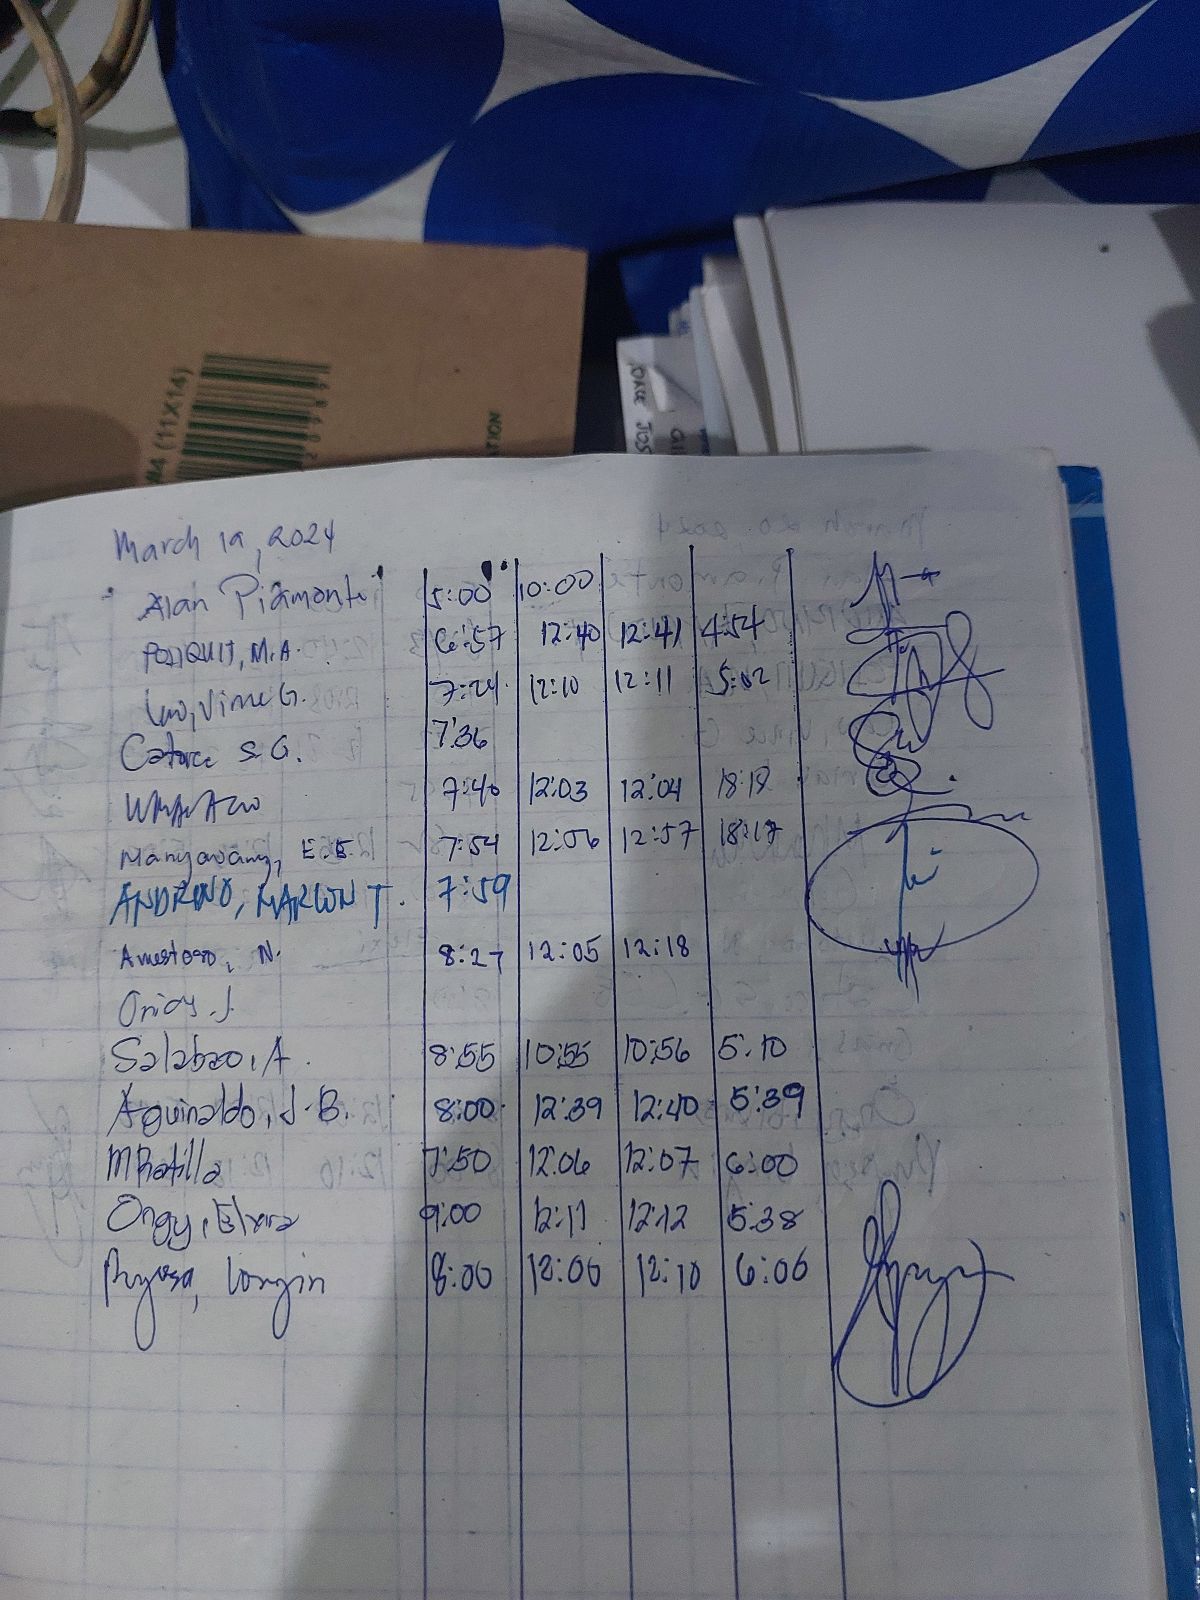 M4 (11X14)
ATION
March 19, 2024
Alan Piamonte 5:00 10:00
POSIQUIT, M.A. 6:57 12:40 12:41 4:54
Vince G. 7:24 12:10 12:11 5:02
Catarce S G. 7:36
7:40 12:03 12:04 18:18
E.B. 7:54 12:56 12:57 18:17
ANDRINO, MARLON T. 7:59
Amestoso, N. 8:27 12:05 12:18
J.
Salabao, A. 8:55 10:55 10:56 5:10
Aguinaldo, J.B. 8:00 12:39 12:40 5:39
MRatilla 7:50 12:06 12:07 6:00
Ongy, Elvira 9:00 12:11 12:12 5:38
Longin 8:00 12:06 12:10 6:06